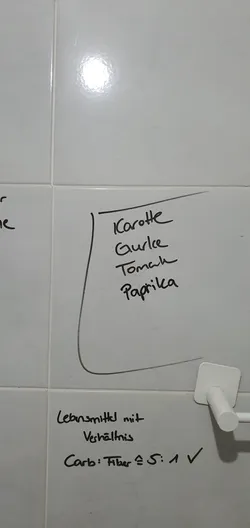 Karotte
Gurke
Tomate
Paprika
Lebensmittel mit
Verhältnis
Carb: Fiber ≙ 5:1 ✓